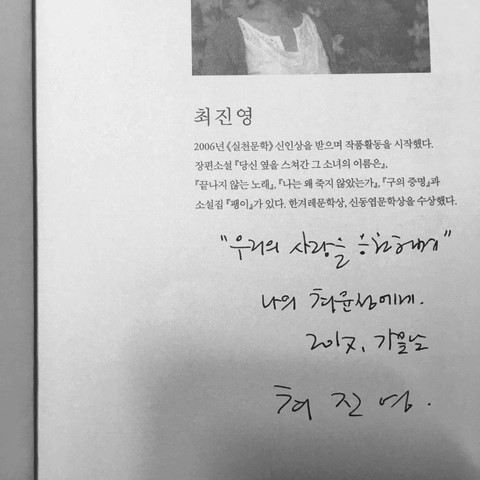 최진영
2006년 《실천문학》 신인상을 받으며 작품활동을 시작했다.
장편소설 『당신 옆을 스쳐간 그 소녀의 이름은』,
『끝나지 않는 노래』, 『나는 왜 죽지 않았는가』, 『구의 증명』과
소설집 『팽이』가 있다. 한겨레문학상, 신동엽문학상을 수상했다.
"우리의 사랑을 응원하며"
나의 에게.
가을날
최진영.